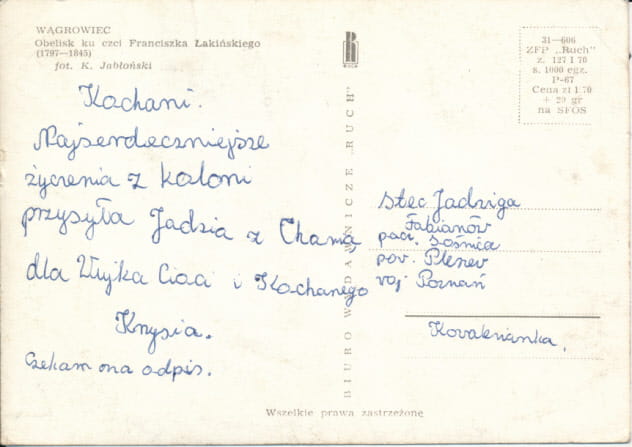 WĄGROWIEC
Obelisk ku czci Franciszka Łakińskiego
(1797—1845)
fot. K. Jabłoński
RUCH
31—606
ZFP „Ruch"
z. 127 I 70
s. 1000 egz.
P-67
Cena zł 1.70
+ 20 gr
na SFOS
Kochani.
Najserdeczniejsze
życzenia z koloni
przysyła Jadzia z Chamą
dla Wujka Cioci i Kochanego
Krzysia.
Czekam na odpis.
BIURO WYDAWNICZE „RUCH"
Stec Jadziga
Fabianów
pocz. Sośnica
pov. Pleszev
voj Poznań
Wszelkie prawa zastrzeżone